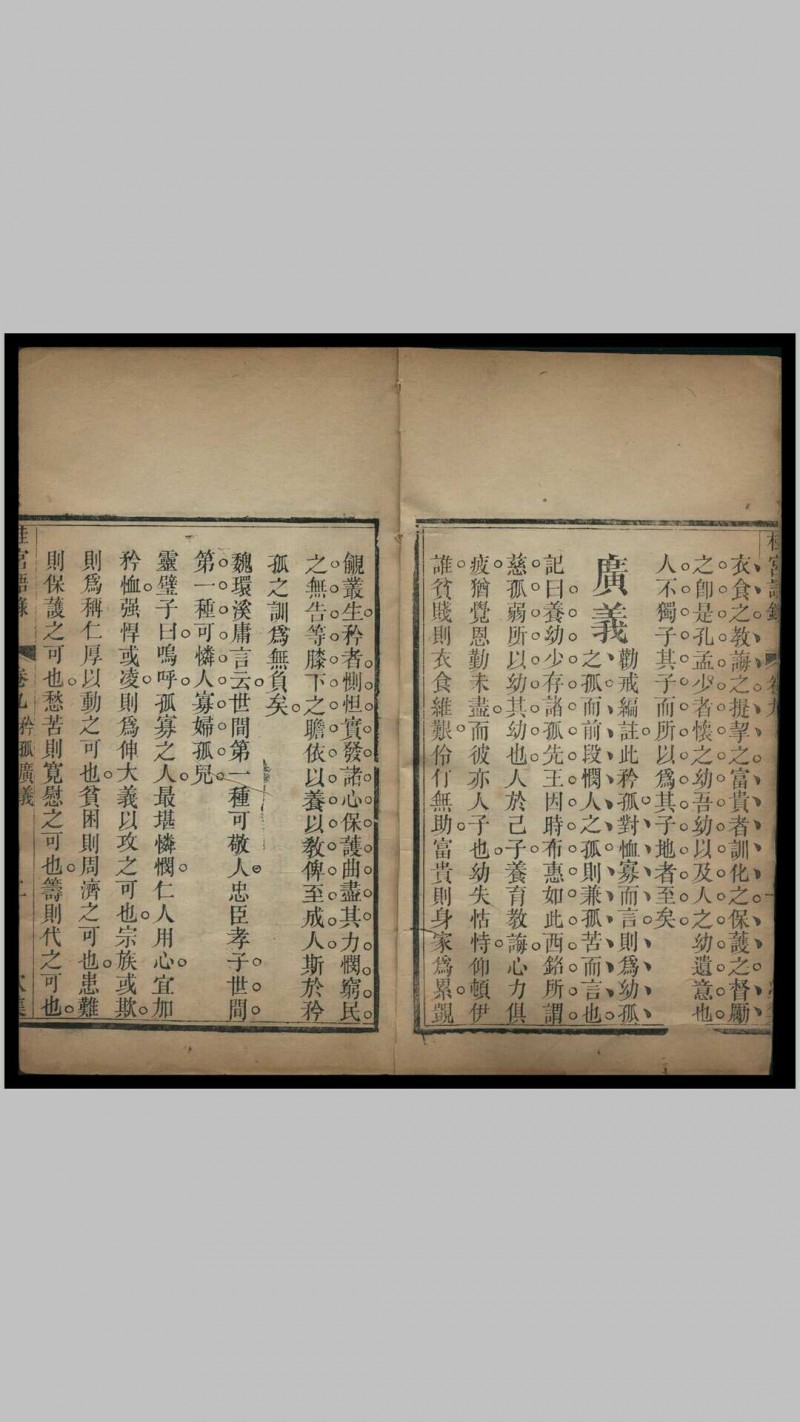 衣食之教誨之提挈之富貴者訓化之保護之督勵
之卽是孔孟少者懷之幼吾幼以及人之幼遺意也
人不獨子其子而所以爲其子地者至矣
廣義 勸戒編註此矜孤對恤寡而言則爲幼孤
之孤而前段憫人之孤則兼孤苦而言也
記曰養幼少存諸孤先王因時布惠如此西銘所謂
慈孤弱所以幼其幼也人於己子養育教誨心力俱
疲猶覺恩勤未盡而彼亦人子也幼失怙恃仰頓伊
誰貧賤則衣食維艱伶仃無助富貴則身家爲累覬
覦叢生矜者惻怛實發諸心保護曲盡其力憫窮民
之無告等膝下之瞻依以養以教俾至成人斯於矜
孤之訓爲無負矣
魏環溪庸言云世間第一種可敬人忠臣孝子世間
第一種可憐人寡婦孤兒
靈璧子曰嗚呼孤寡之人最堪憐憫仁人用心宜加
矜恤强悍或凌則爲伸大義以攻之可也宗族或欺
則爲稱仁厚以動之可也貧困則周濟之可也患難
則保護之可也愁苦則寬慰之可也籌則代之可也
宮語錄 卷九 矜孤廣義 二